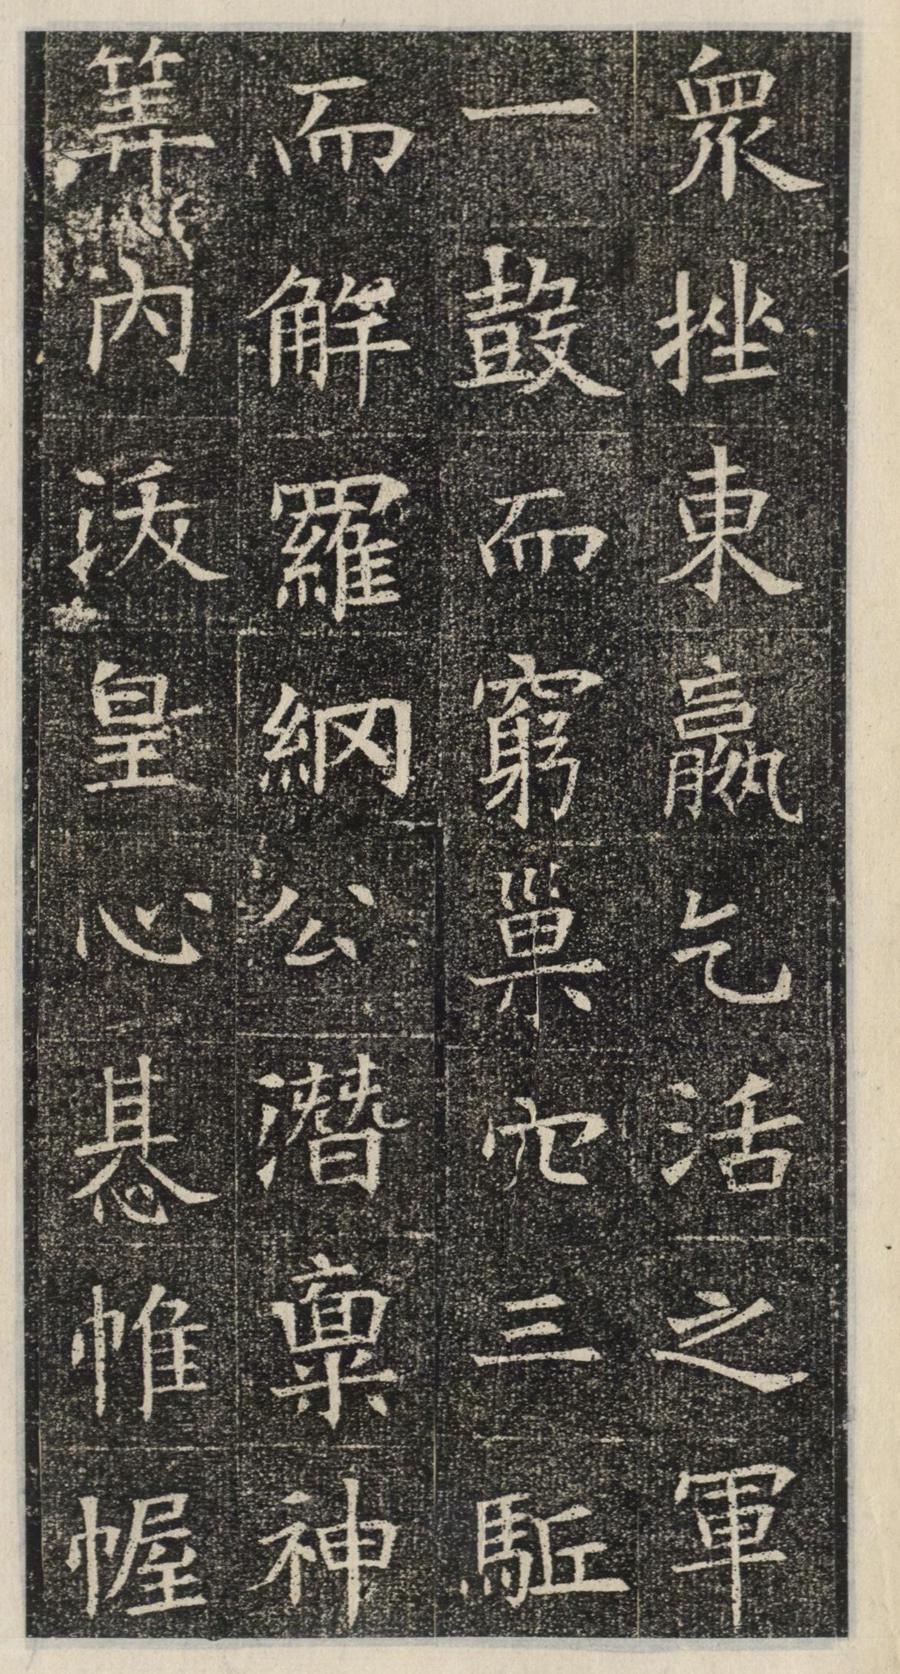 衆挫東嬴乞活之軍
一鼓而窮巢穴三駈
而解羅網公潛稟神
筭內沃皇心惎帷幄